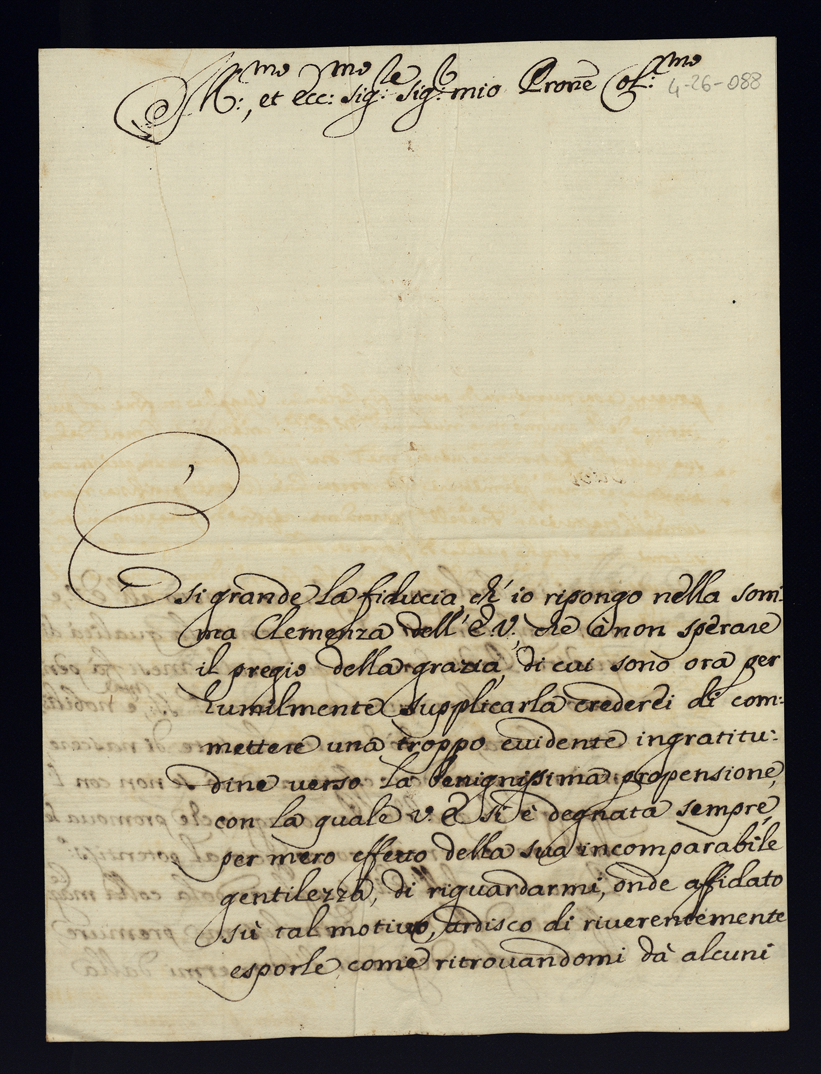 Ill:mo, et Ecc:mo Sig:re Sig:r mio Prone Col:mo
4-26-088
È si grande la fiducia, ch' io ripongo nella som-
ma Clemenza dell' E.V. che à non sperare
il pregio della grazia, di cui sono ora per
humilmente supplicarla crederei di com-
mettere una troppo evidente ingratitu-
dine verso la benignissima propensione,
con la quale V. E. si è degnata sempre,
per mero effetto della sua incomparabile
gentilezza, di riguardarmi, onde affidato
sù tal motivo, ardisco di riverentemente
esporle come ritrovandomi dà alcuni